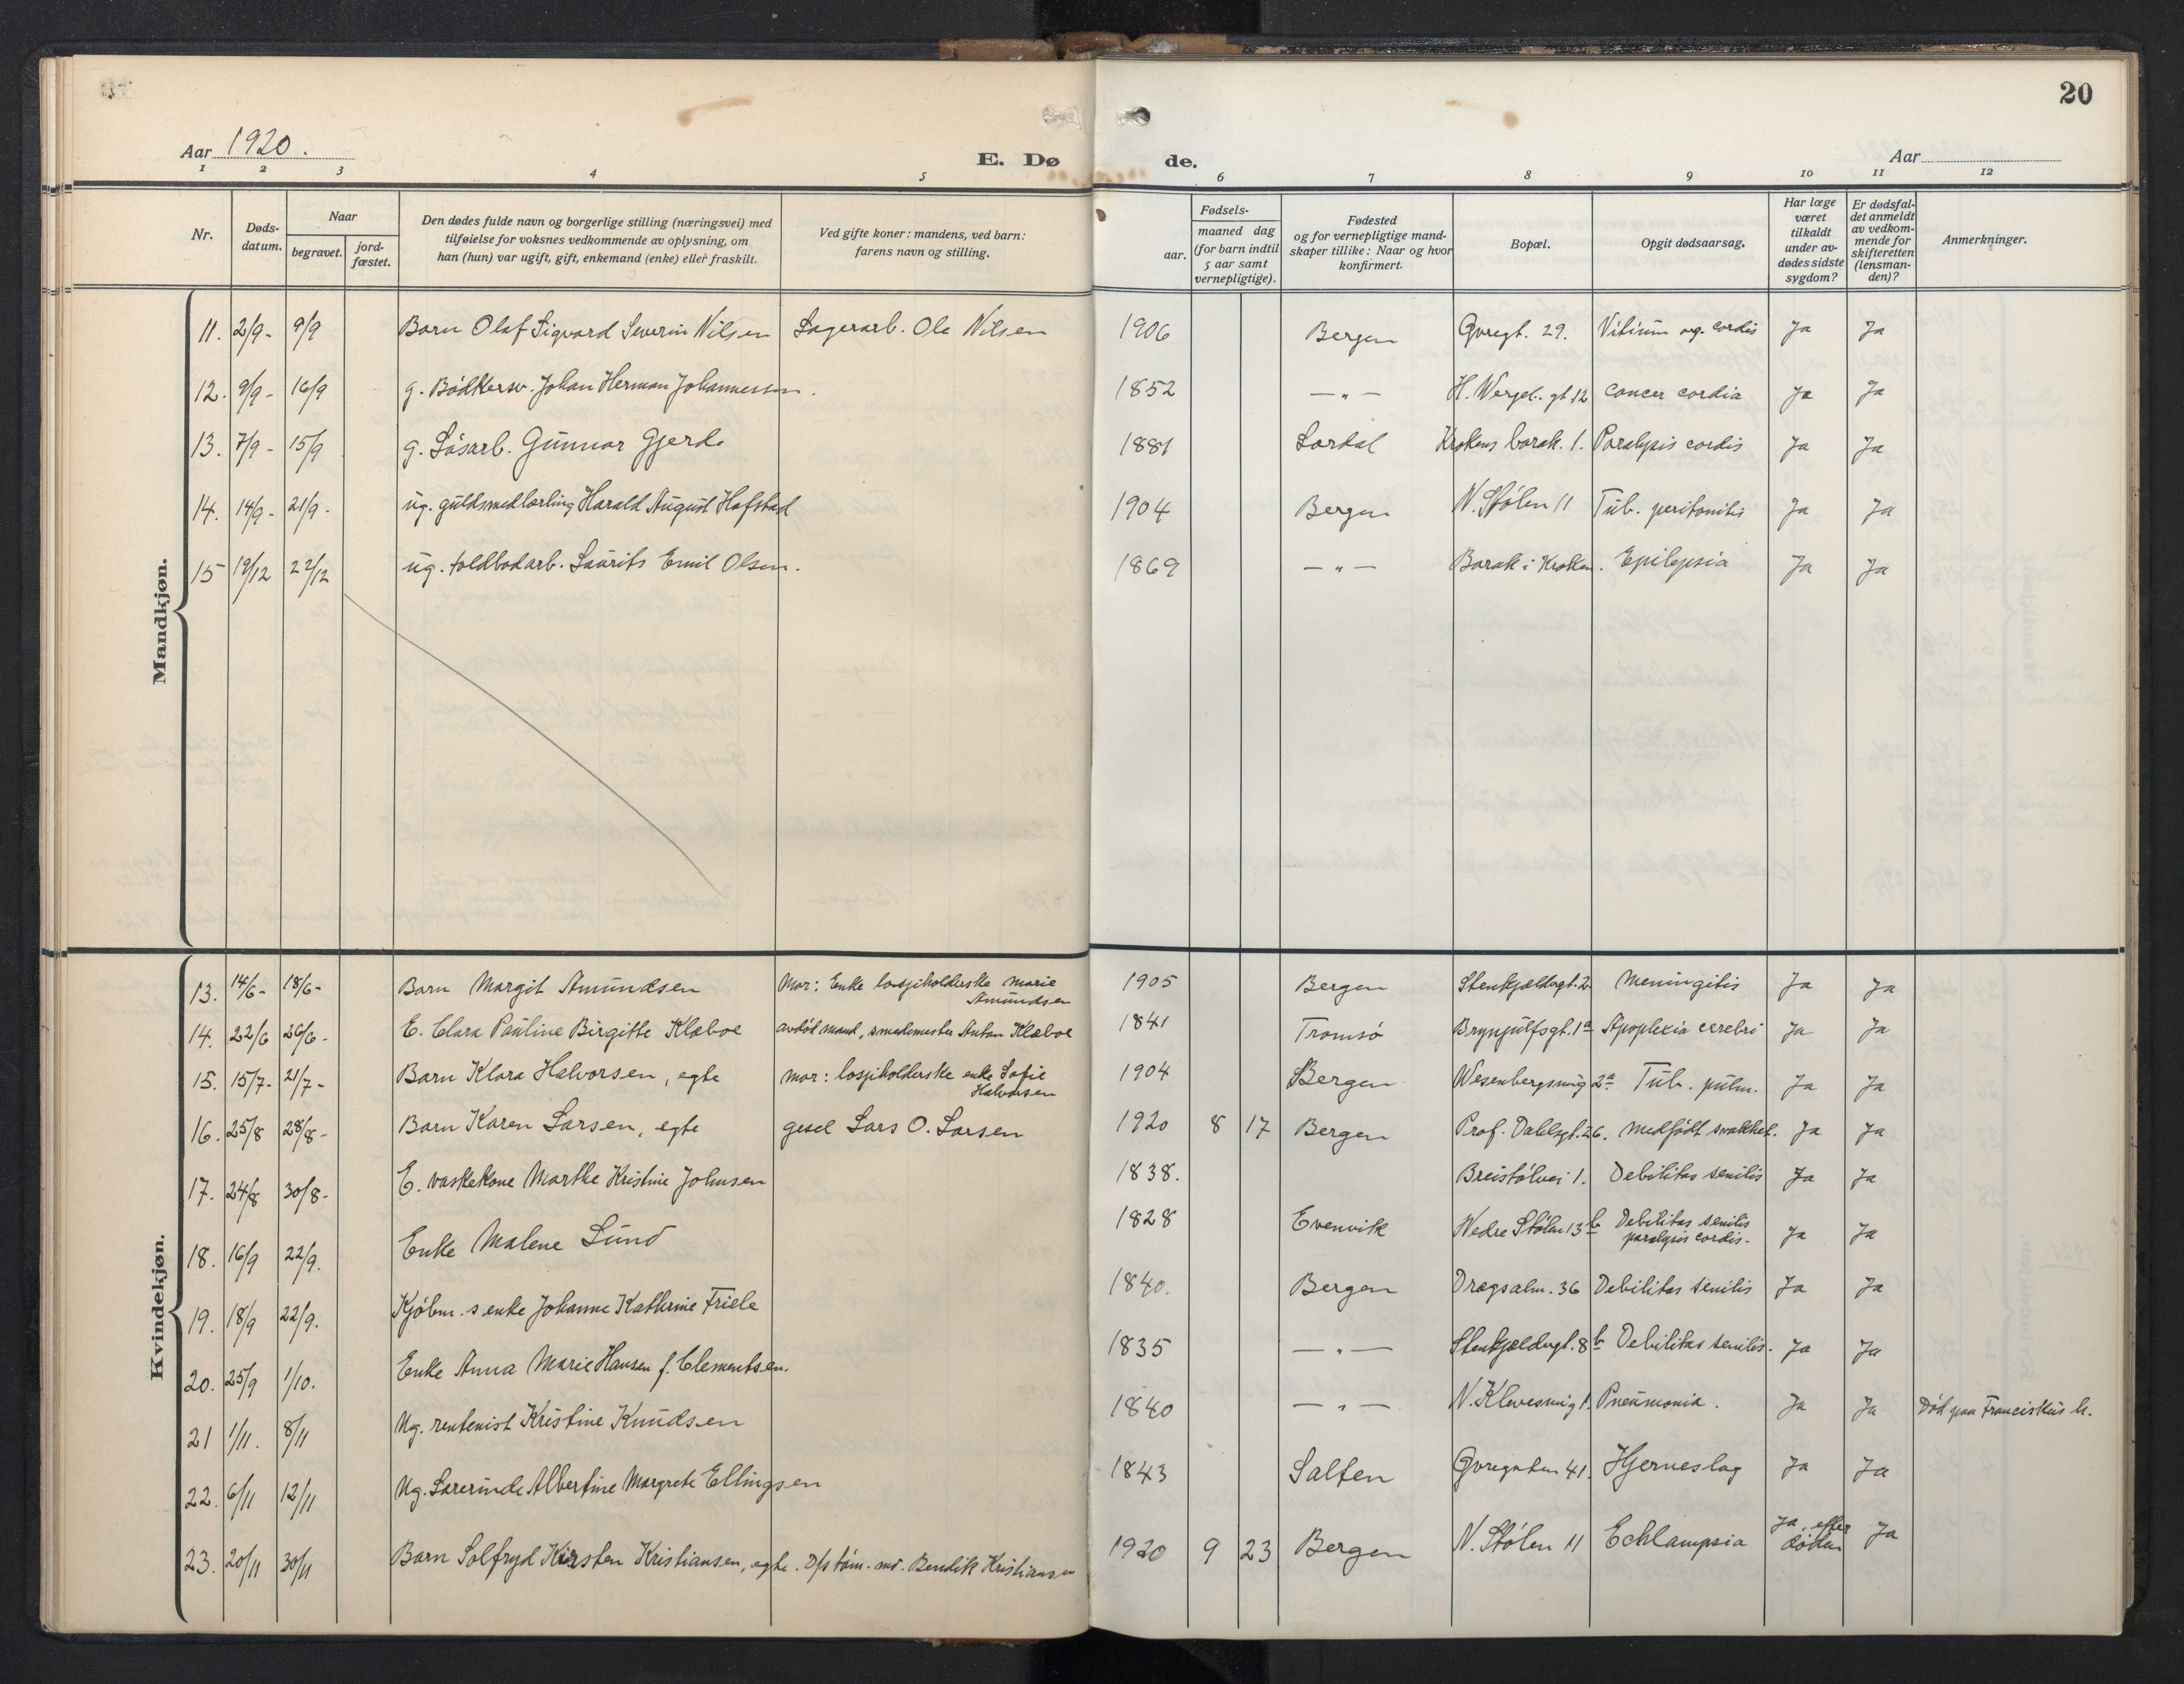 20
Aar 1920.
E. Dø de.
Aar
1 2 3 4 5 6 7 8 9 10 11 12
Nr.
Døds-
datum.
Naar
begravet. jord-
fæstet.
Den dødes fulde navn og borgerlige stilling (næringsvei) med
tilføielse for voksnes vedkommende av oplysning, om
han (hun) var ugift, gift, enkemand (enke) eller fraskilt.
Ved gifte koner: mandens, ved barn:
farens navn og stilling.
Fødsels-
aar. maaned dag
(for barn indtil
5 aar samt
vernepligtige).
Fødested
og for vernepligtige mand-
skaper tillike: Naar og hvor
konfirmert.
Bopæl.
Opgit dødsaarsag.
Har læge
været
tilkaldt
under av-
dødes sidste
sygdom?
Er dødsfal-
det anmeldt
av vedkom-
mende for
skifteretten
(lensman-
den)?
Anmerkninger.
Mandkjøn.
11. 2/9- 9/9 Barn Olaf Sigvard Severin Nilsen Lagerarb. Ole Nilsen 1906 Bergen Øvregt. 29. Vitium org. cordis Ja Ja
12. 9/9- 16/9 g. Bødkersv. Johan Herman Johannessen. 1852 — " — H. Wergel. gt 12 cancer cordia Ja Ja
13. 7/9- 15/9 g. Løsarb. Gunnar Gjerde 1881 Lærdal Krokens barak. 1. Paralysis cordis Ja Ja
14. 14/9- 21/9- ug. guldsmedlærling Harald August Hafstad 1904 Bergen N. Stølen 11 Tub. peritonitis Ja Ja
15 19/12 22/12 ug. toldbodarb. Laurits Emil Olsen. 1869 — " — Barak i Kroken. Epilepsia Ja Ja
Kvindekjøn.
13. 14/6- 18/6- Barn Margit Amundsen Mor: Enke losjiholderske Marie
Amundsen 1905 Bergen Stenkjeldergt. 2. Meningitis Ja Ja
14. 22/6 26/6- E. Clara Pauline Birgitte Klæboe avdød mand, smedemester Anton Klæboe 1841 Tromsø Brynjulfsgt. 1a Apoplexia cerebri Ja Ja
15. 15/7- 21/7- Barn Klara Halvorsen, egte mor: losjiholderske enke Sofie
Halvorsen 1904 Bergen Wesenbergsmug 2a Tub. pulm. Ja Ja
16. 25/8 28/8- Barn Karen Larsen, egte gesel Lars O. Larsen 1920 8 17 Bergen Prof. Dahlsgt. 26. medfødt svakhet. Ja Ja
17. 24/8 30/8- E. vaskekone Marthe Kristine Johnsen 1838. Breistølvei 1. Debilitas senilis Ja Ja
18. 16/9 22/9. Enke Malene Lund 1828 Evenvik Nedre Stølen 13b Debilitas senilis
paralysis cordis- Ja Ja
19. 18/9 22/9. Kjøbm.s enke Johanne Kathrine Friele 1840. Bergen Dregsalm. 36 Debilitas senilis Ja Ja
20. 25/9 1/10. Enke Anna Marie Hansen f. Clementsen. 1835 — " — Stenkjeldergt. 8b Debilitas senilis. Ja Ja
21 1/11. 8/11 Ug. rentenist Kristine Knudsen 1840 — " — N. Klevesmug 1. Pneumonia. Ja Ja Død paa Franciskus h.
22. 6/11 12/11 Ug. Lærerinde Albertine Margrete Ellingsen 1843 Salten Øvregaten 41. Hjerneslag Ja Ja
23. 20/11 30/11 Barn Solfryd Kirsten Kristiansen, egte. D/s tøm. md. Bendik Kristiansen 1920 9 23 Bergen N. Stølen 11 Echlampsia Ja, efter
døden Ja